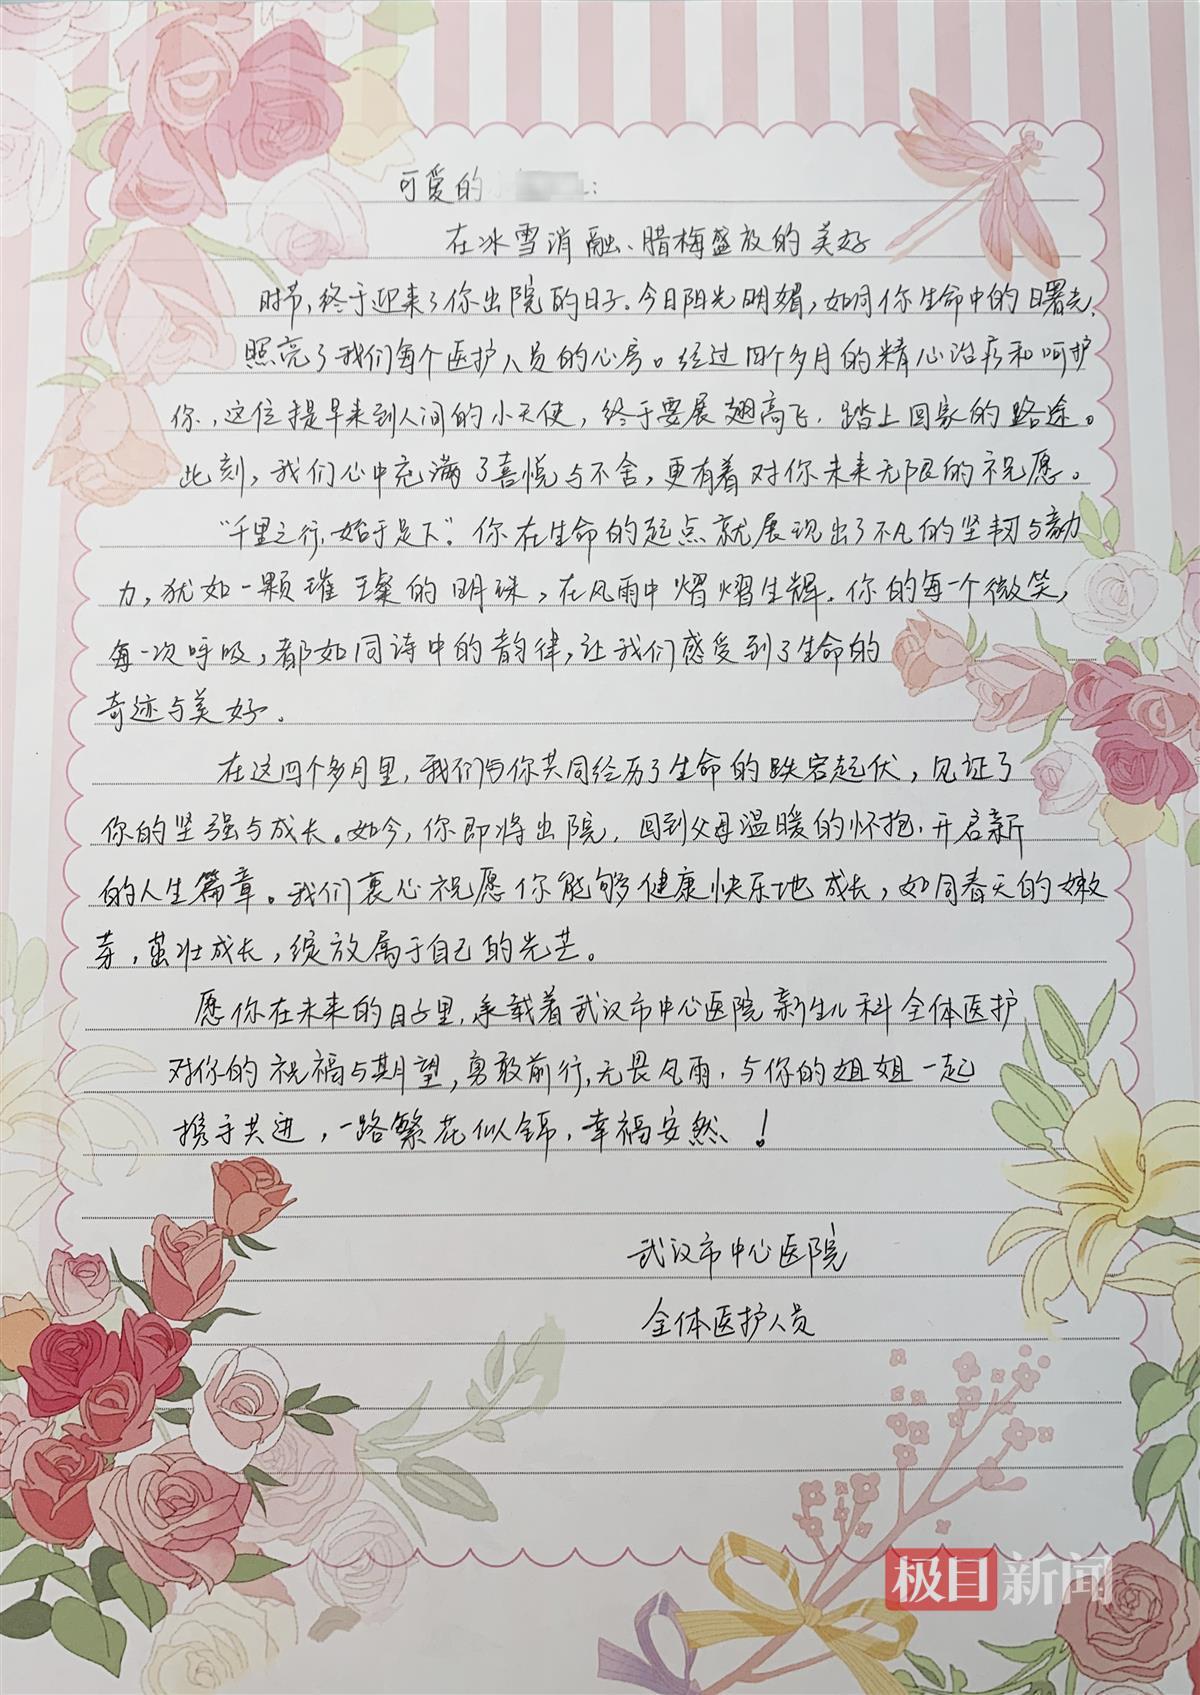 可爱的 :
在冰雪消融、腊梅盛放的美好
时节,终于迎来了你出院的日子。今日阳光明媚,如同你生命中的曙光,
照亮了我们每个医护人员的心房。经过四个多月的精心治疗和呵护
你,这位提早来到人间的小天使,终于要展翅高飞,踏上回家的路途。
此刻,我们心中充满了喜悦与不舍,更有着对你未来无限的祝愿。
“千里之行,始于足下”。你在生命的起点就展现出了不凡的坚韧与毅
力,犹如一颗璀璨的明珠,在风雨中熠熠生辉。你的每一个微笑,
每一次呼吸,都如同诗中的韵律,让我们感受到了生命的
奇迹与美好。
在这四个多月里,我们与你共同经历了生命的跌宕起伏,见证了
你的坚强与成长。如今,你即将出院,回到父母温暖的怀抱,开启新
的人生篇章。我们衷心祝愿你能够健康快乐地成长,如同春天的嫩
芽,茁壮成长,绽放属于自己的光芒。
愿你在未来的日子里,承载着武汉市中心医院新生儿科全体医护
对你的祝福与期望,勇敢前行,无畏风雨,与你的姐姐一起
携手共进,一路繁花似锦,幸福安然!
武汉市中心医院
全体医护人员
极目新闻